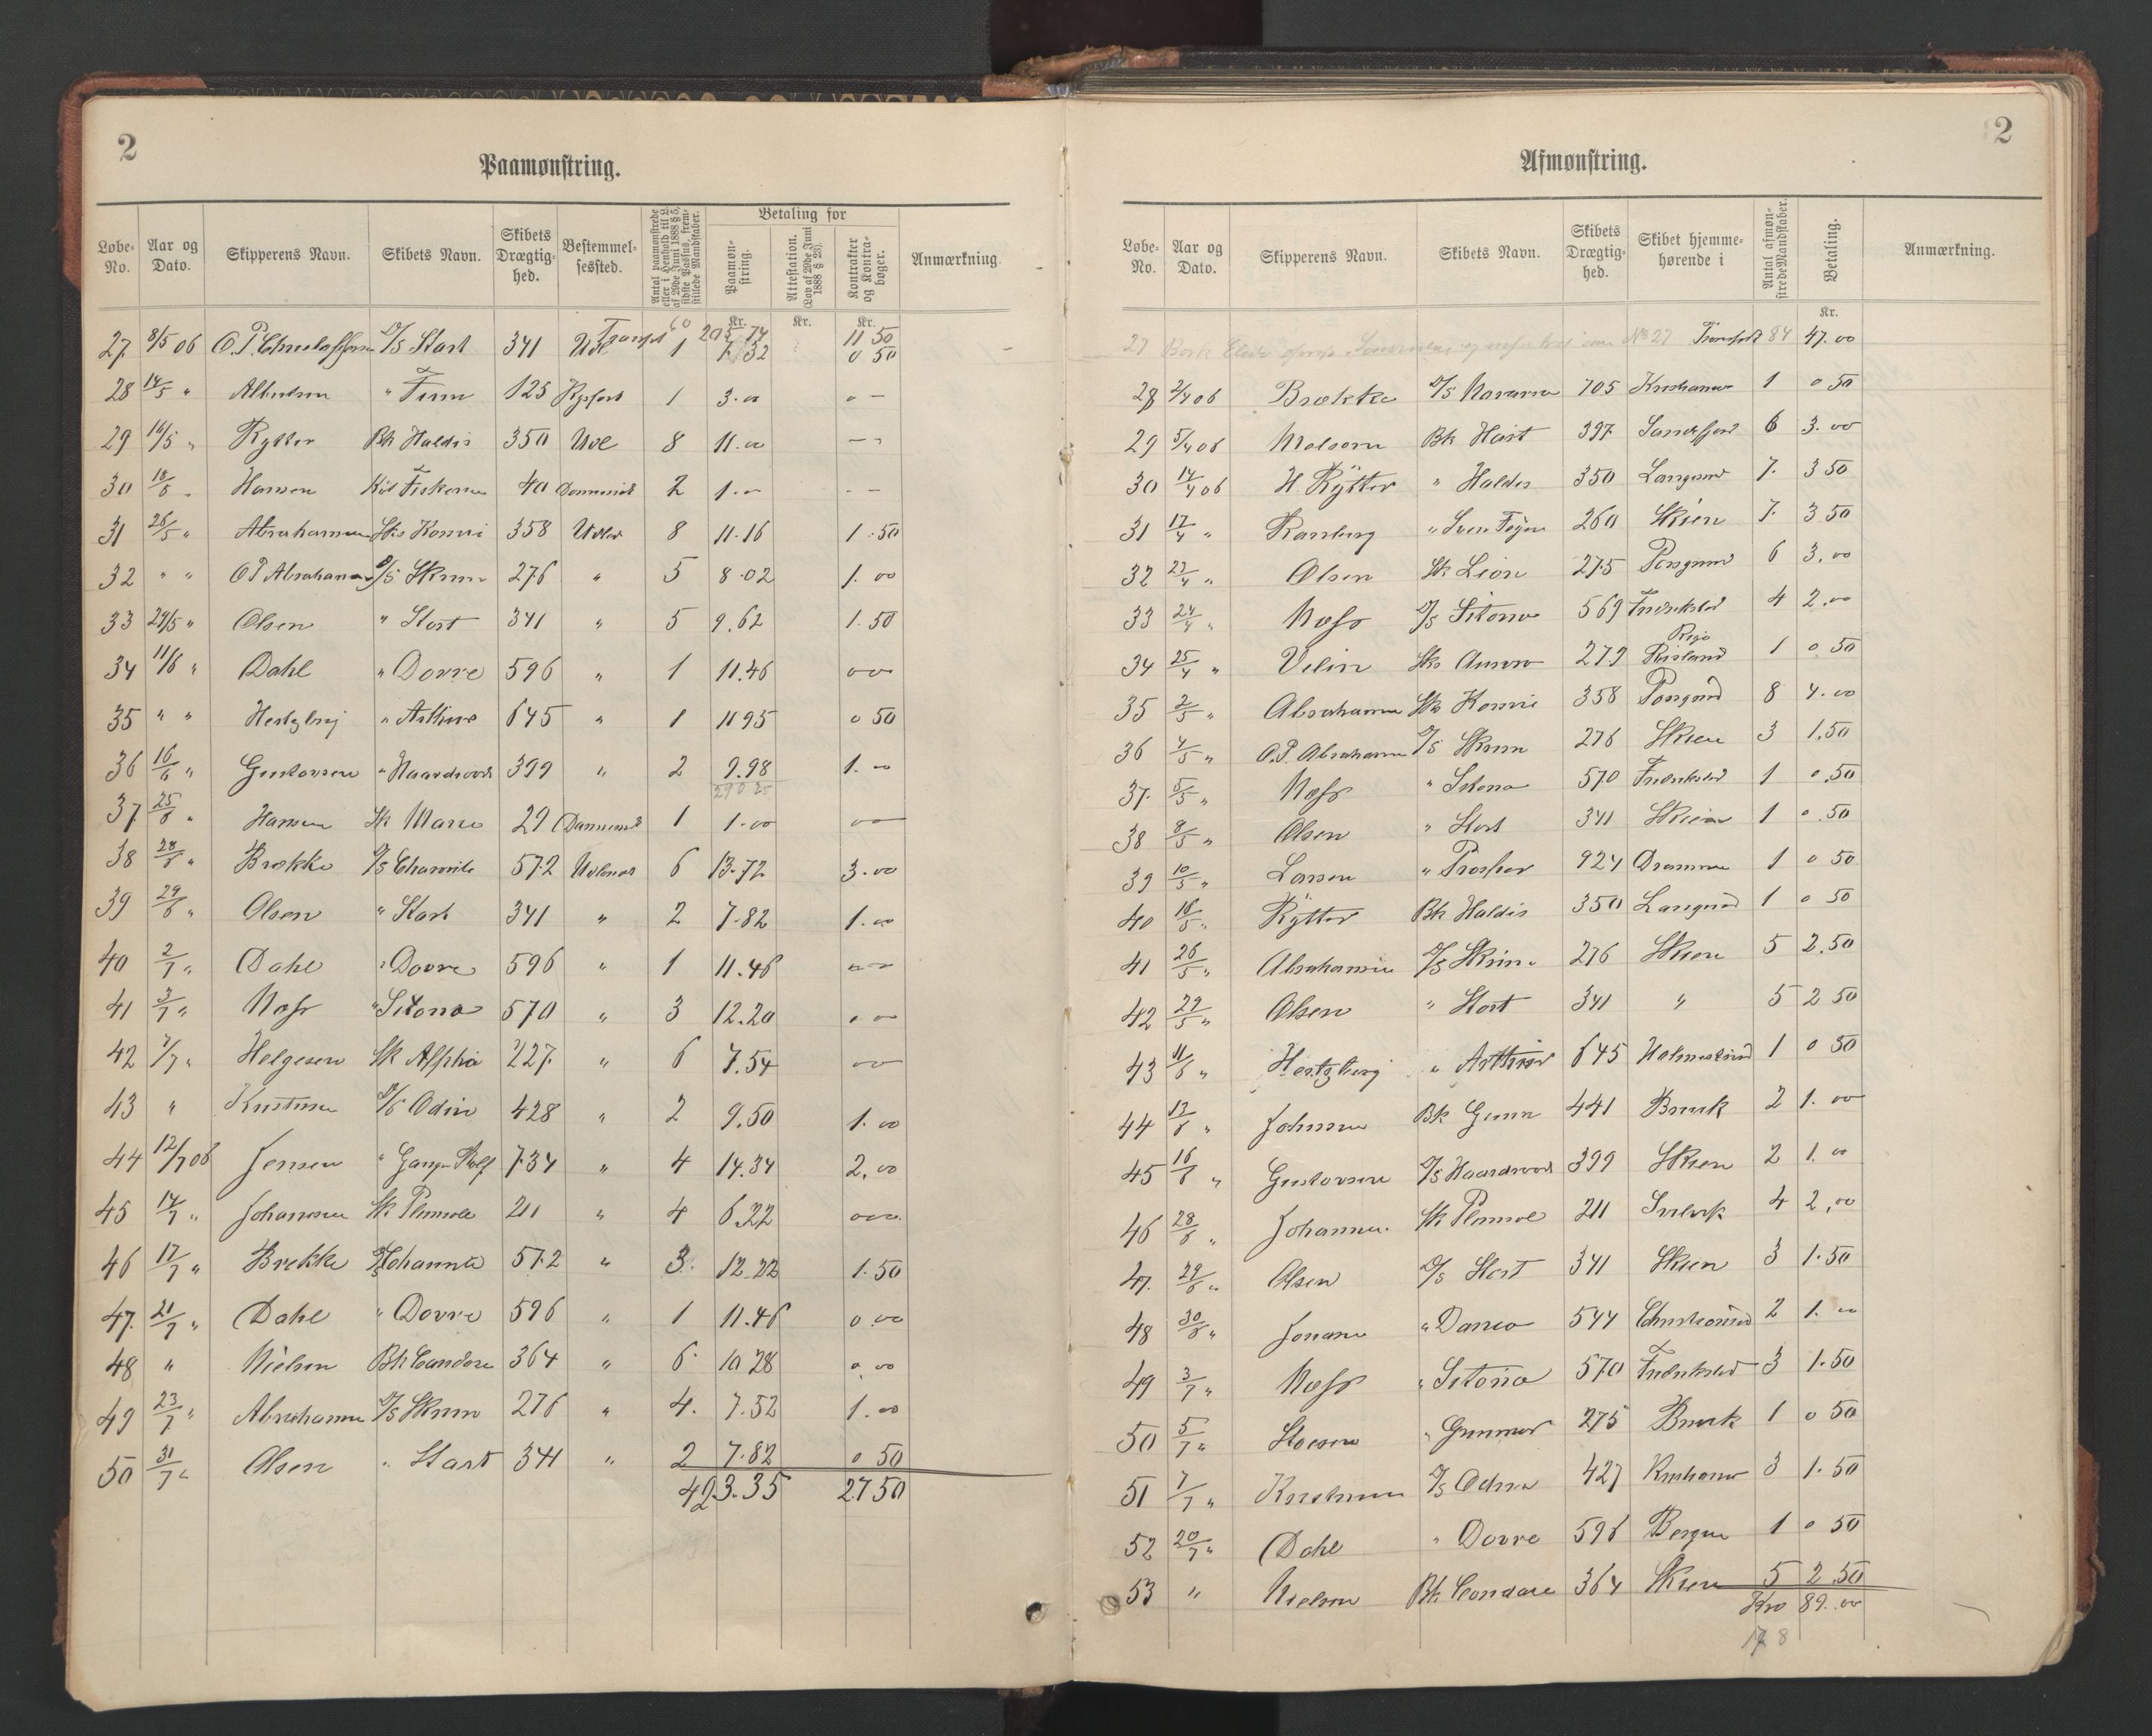 2
Paamønstring.
Løbe-No. Aar og Dato. Skipperens Navn. Skibets Navn. Skibets Drægtig-hed. Bestemmel-sessted. Antal paamønstrede eller i Henhold til L. af 29de Juni 1888 § 5, sidste Passus, frem-stillede Mandskaber. Betaling for Paamøn-string. Attestation. (Lov af 29de Juni 1888 § 23). Kontrakter og Kontra-bøger. Anmærkning.
Kr. Kr. Kr.
Transpt 60 205 74 11 50
27 8/5 06 D/S Start 341 Udl 1 7 32 0 50
28 14/5 " " Fum 125 1 3.00 0 —
29 16/5 " Rytter Bk Haldis 350 Udl 8 11.00 — "
30 18/5 " Hansen Fiskeren 40 Danmark 2 1.— . —
31 26/5 " Abrahamsen Sk Konvi 358 Udlw 8 11.16 1.50
32 " " O P Abrahamsen D/S Skrim 276 " 5 8.02 1.00
33 29/5 " Olsen " Start 341 " 5 9.62 1.50
34 11/6 " Dahl " Dovre 596 " 1 11.46 00
35 " " Hertzberg " Arthur 645 " 1 11 95 0 50
36 16/6 " Gustavsen " Haardraade 399 " 2 9.98 1.00
290 25
37 25/6 " Hansen Sk Marie 29 Danmark 1 1.00 00
38 28/6 " Brække D/S 572 Udlandt 6 13.72 3.00
39 29/6 " Olsen " Start 341 " 2 7.82 1.00
40 2/7 " Dahl " Dovre 596 " 1 11.46 00
41 3/7 " Næss " Sitona 570 " 3 12.20 . 00
42 7/7 " Helgesen Sk Alpha 227 " 6 7.54 00
43 " Kristensen D/S Odin 428 " 2 9.50 1.00
44 12/7 06 Jensen " Gange Rolf 734 " 4 14.34 2.00
45 14/7 " Johansen Sk 211 " 4 6.22 000
46 17/7 " Brekke D/S 572 " 3. 12.22 1.50
47 21/7 " Dahl " Dovre 596 " 1 11.46 0.00
48 " Nielsen Bk Condore 364 " 6 10 28 0.00
49 23/7 " Abrahamsen D/S Skrim 276 " 4. 7.52 1.00
50 31/7 " Olsen " Start 341 " 2 7.82 0 50
423.35 27 50
2
Afmønstring.
Løbe-No. Aar og Dato. Skipperens Navn. Skibets Navn. Skibets Drægtig-hed. Skibet hjemme-hørende i Antal afmøn-strede Mandskaber. Betaling. Anmærkning.
Kr.
27 Bark No 27 Transpt 84 47.00
28 2/4 06 Brække D/S Navarra 705 Kristiania 1 0 50
29 5/4 06 Melsom Bk Hast 397 Sandefjord 6 3.00
30 14/4 06 H Rytter " Haldis 350 Langesund 7 3 50
31 17/4 " Ramberg " Sven Foyn 260 Skien 7 3 50
32 23/4 " Olsen Sk Lion 275 Porsgrund 6 3.00
33 24/4 " Næss D/S Sitona 569 Fredrikstad 4 2.00
34 25/4 " Velin Sk 279 Riga Rusland 1 0 50
35 2/5 " Abrahamsen Sk Konvi 358 Porsgrund 8 4.00
36 4/5 " O.P. Abrahamsen D/S Skrim 276 Skien 3 1.50
37 5/5 " Næss " Sitona 570 Fredrikstad 1 0.50
38 8/5 " Olsen " Start 341 Skien 1 0.50
39 10/5 " Larsen " Prosper 924 Drammen 1 0 50
40 16/5 " Rytter Bk Haldis 350 Langesund 1 0 50
41 26/5 " Abrahamsen D/S Skrim 276 Skien 5 2.50
42 29/5 " Olsen " Start 341 " 5 2 50
43 11/6 " Hertzberg " Arthur 645 Holmestrand 1 0 50
44 13/6 " Johnsen Bk Gunn 441 Brevik 2 1.00
45 16/6 " Gustavsen D/S Haardraade 399 Skien 2 1.00
46 28/6 " Johansen Sk 211 4 2.00
47 29/6 " Olsen D/S Start 341 Skien 3 1.50
48 30/6 " 544 Christiansund 2 1.00
49 3/7 " Næss " Sitona 570 Fredrikstad 3 1.50
50 5/7 " " Gunnar 275 Brevik 1 0 50
51 7/7 " Kristensen D/S Odin 427 Kristiania 3 1.50
52 20/7 " Dahl " Dovre 596 Bergen 1 0 50
53 " Nielsen Bk Condore 364 Skien 5 2.50
Kro 89.00
178